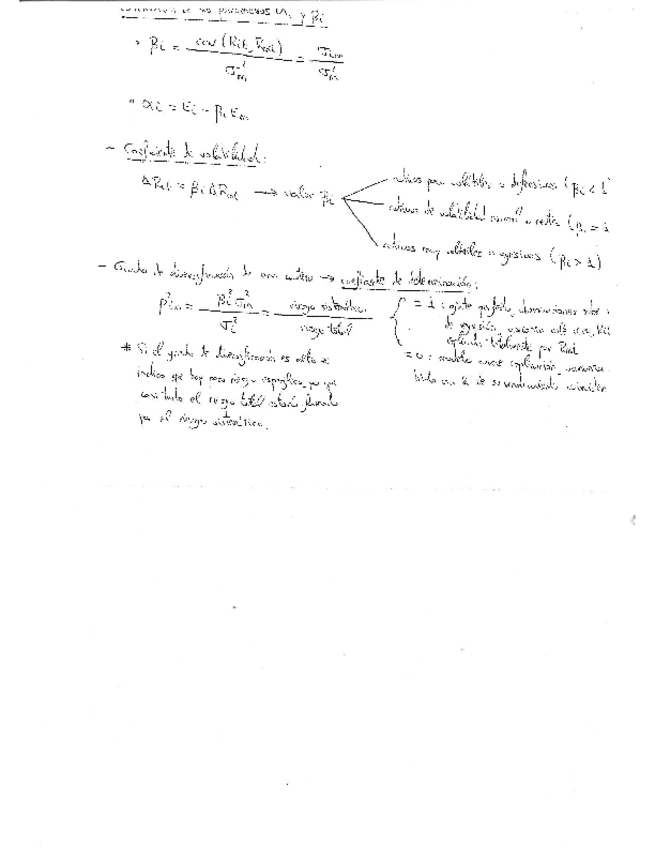 de los parámetros αi y βi
• βi = cov (Rit, Rmt) / σ²m = σim / σ²m
• αi = Ei - βi Em
- Coeficiente de volatilidad:
ΔRit = βi ΔRmt → valor βi
activos poco volátiles o defensivos (βi < 1
activos de volatilidad normal o neutra (βi = 1
activos muy volátiles o agresivos (βi > 1)
- Grado de diversificación de una cartera → coeficiente de determinación:
ρ²im = βi² σ²m / σi² = riesgo sistemático / riesgo total
= 1 : ajuste perfecto, observaciones sobre
de regresión, varianza
explicada totalmente por Rmt
= 0 : modelo carece explicación,
* Si el grado de diversificación es alto =
indica que hay poco riesgo específico, ya que
casi todo el riesgo total estaría formado
por el riesgo sistemático.